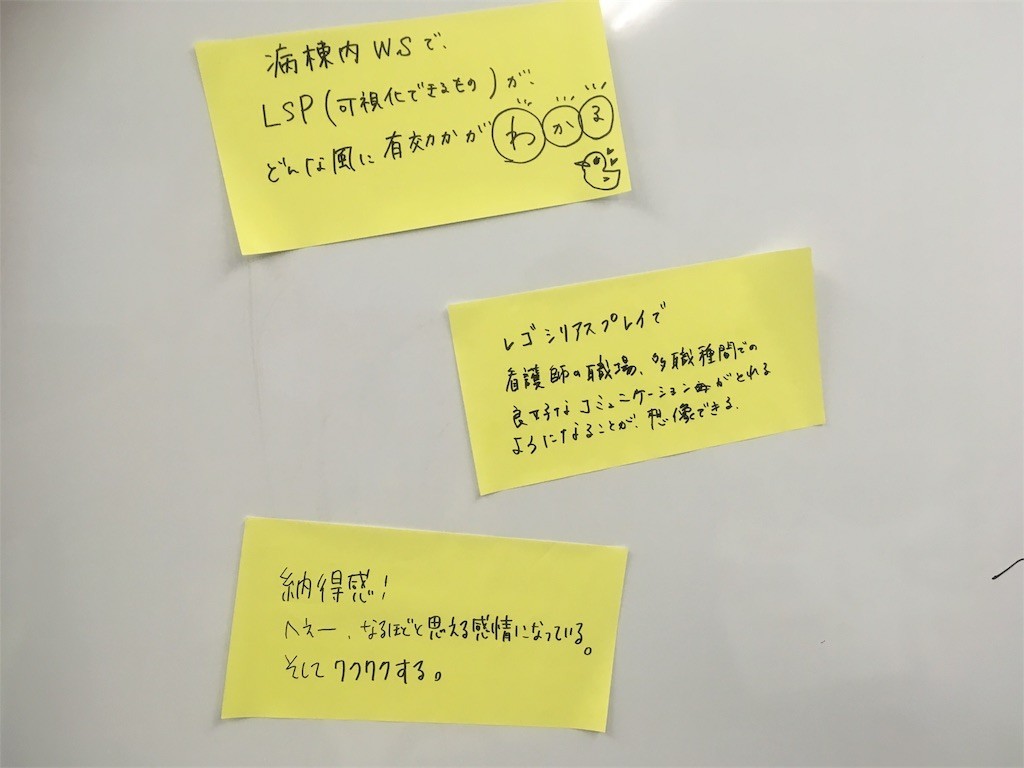 病棟内WSで、
LSP(可視化できるもの)が、
どんな風に有効かがわかる
レゴシリアスプレイで
看護師の職場、多職種間での
良好なコミュニケーションがとれる
ようになることが、想像できる。
納得感！
へぇー、なるほどと思える感情になっている。
そしてワクワクする。